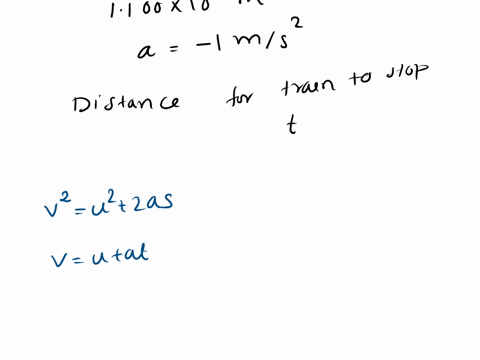 1.100 x 10 m
a = -1 m/s²
Distance for train to stop
t
v² = u² + 2as
v = u + at